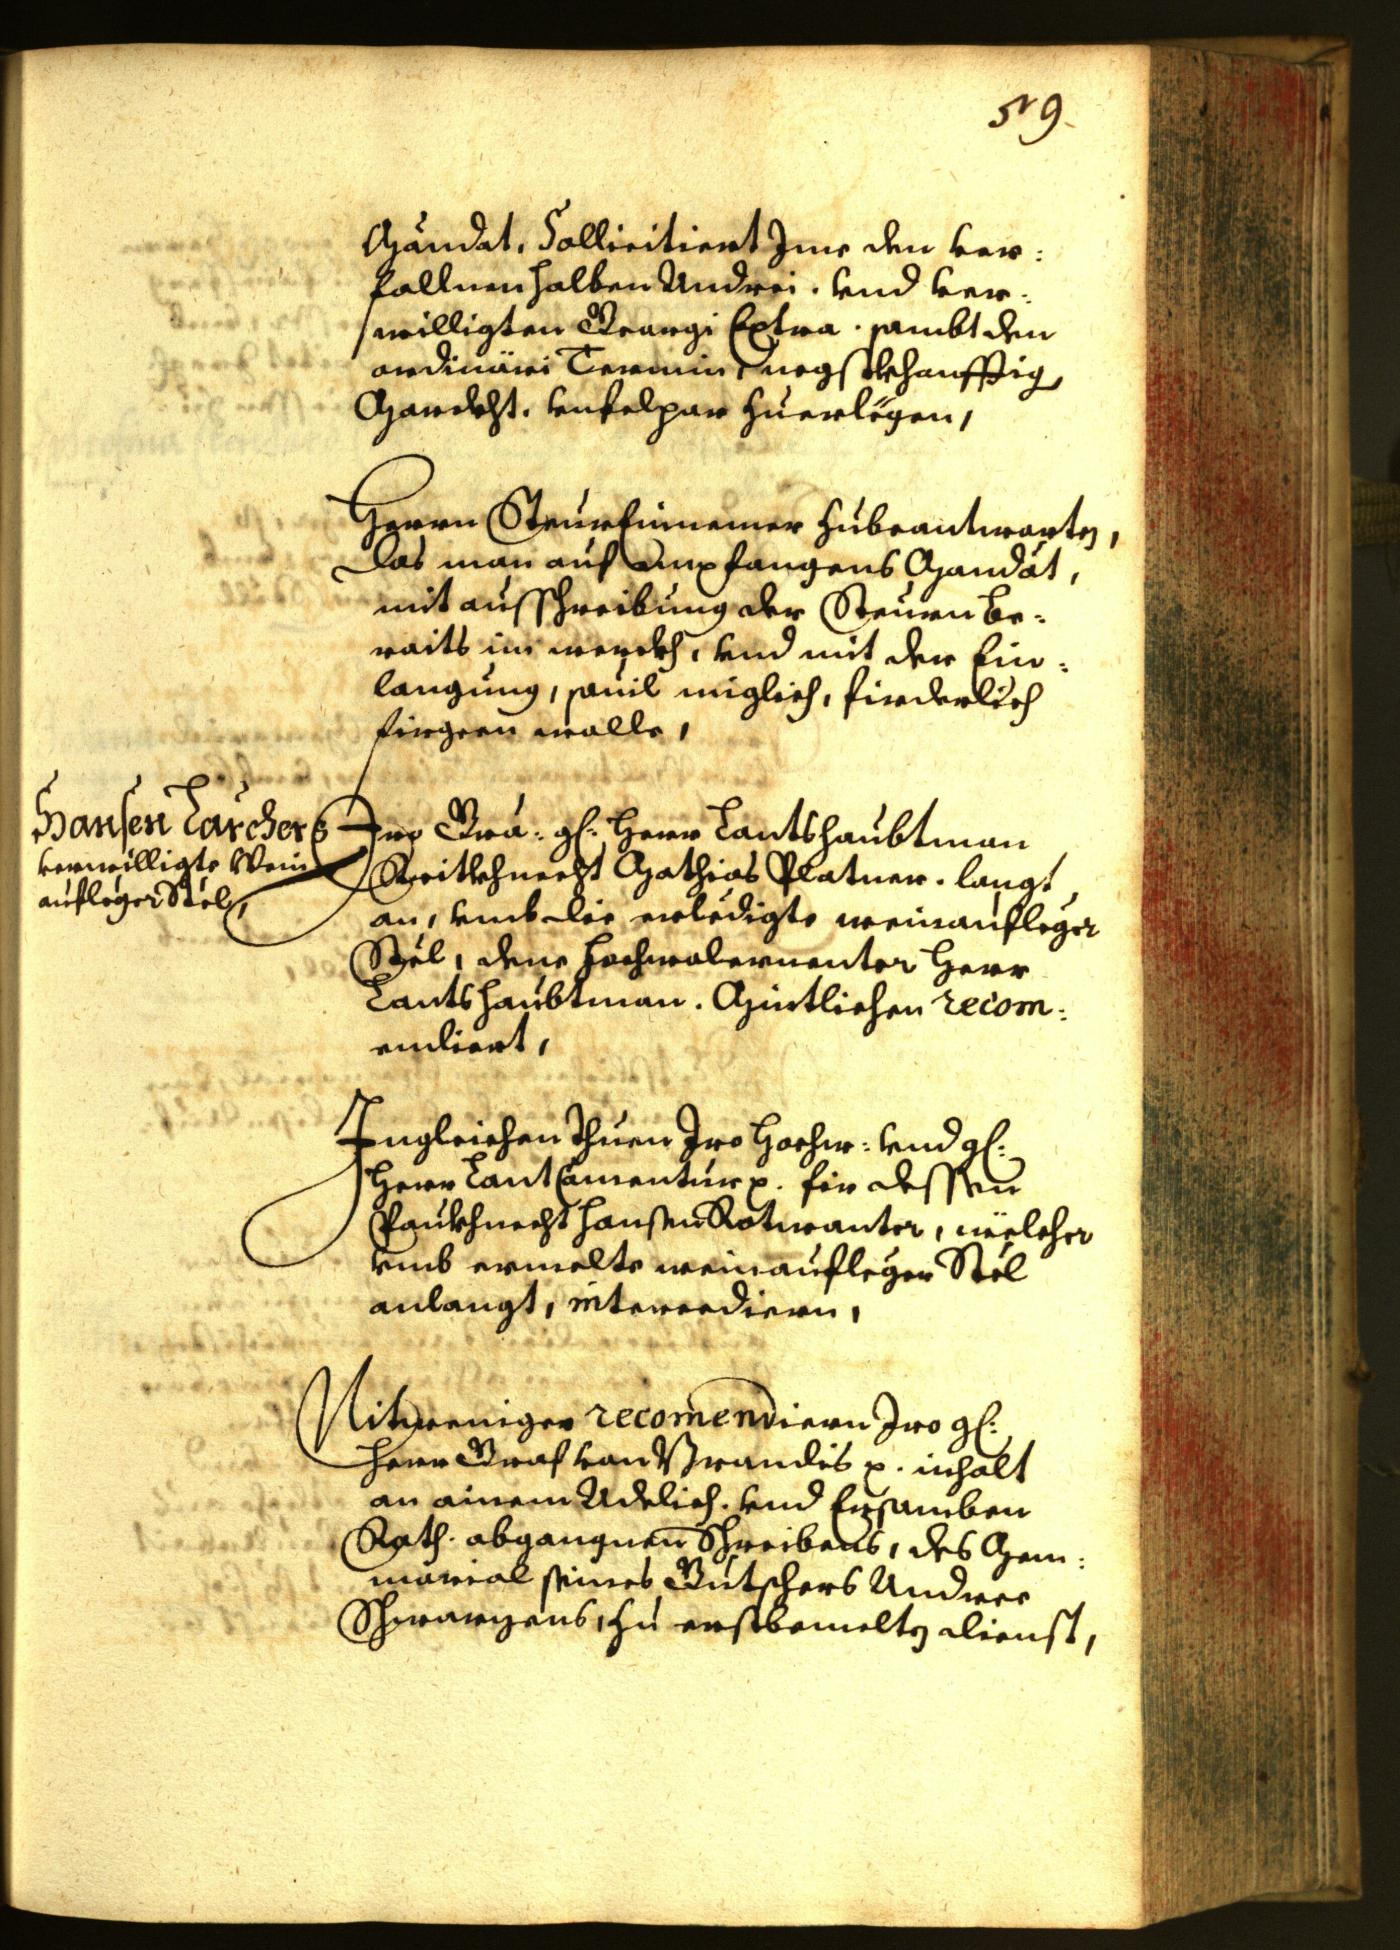 59
Mandat, Sollicitiert Jme den ver:
fallnen halben Andrei. vnd ver:
willigten Georgi Extra. sambt den
ordinäri Termin negstkhonfftig
Marckht. vnfelpar zuerlegen,
Herrn Steur Einnemer zubeantworten,
das man auf empfangens Mandat,
mit ausschreibung der Steurn be:
raits im werckh, vnd mit der Ein:
langung, souil miglich, firderlich
firgeen wolle,
Hansen Larchers
verwilligte Wein
aufleger Stöl,
Iro Gra: gl: Herr Lantshaubtman
Reitkhnecht Mathias Platner. langt
an, vmb die erledigte weinaufleger
Stel, dene hochwolernenter Herr
Lantshaubtman. Mintlichen recom:
endiert,
Ingleichen thuen Iro Hochw: vnd gl:
Herr Lant Comentur p. fir dessen
Paukhnecht Hansen Rotwanter, wielcher
vmb ermelte weinaufleger Stel
anlangt, intercediern,
Nit weniger recomendiern Iro gl:
Herr Graf von Brandis p. inhalt
an ainem Adelich. vnd Ersamben
Rath. abgangnen Schreibens, des Mem:
morial seines Gutschers Andree
Schwarzens, zu erstbemelten dienst,